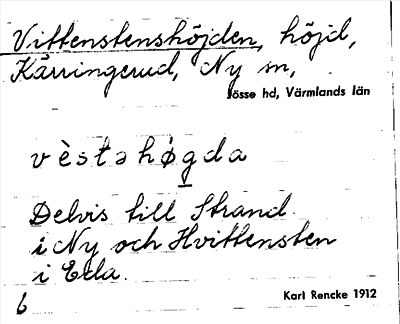 Vittenstenshöjden, höjd,
Kärringerud, Ny sn,
Jösse hd, Värmlands län
vès̀təhø̀gda
Delvis till Strand
i Ny och Hvittensten
i Eda.
6
Karl Rencke 1912